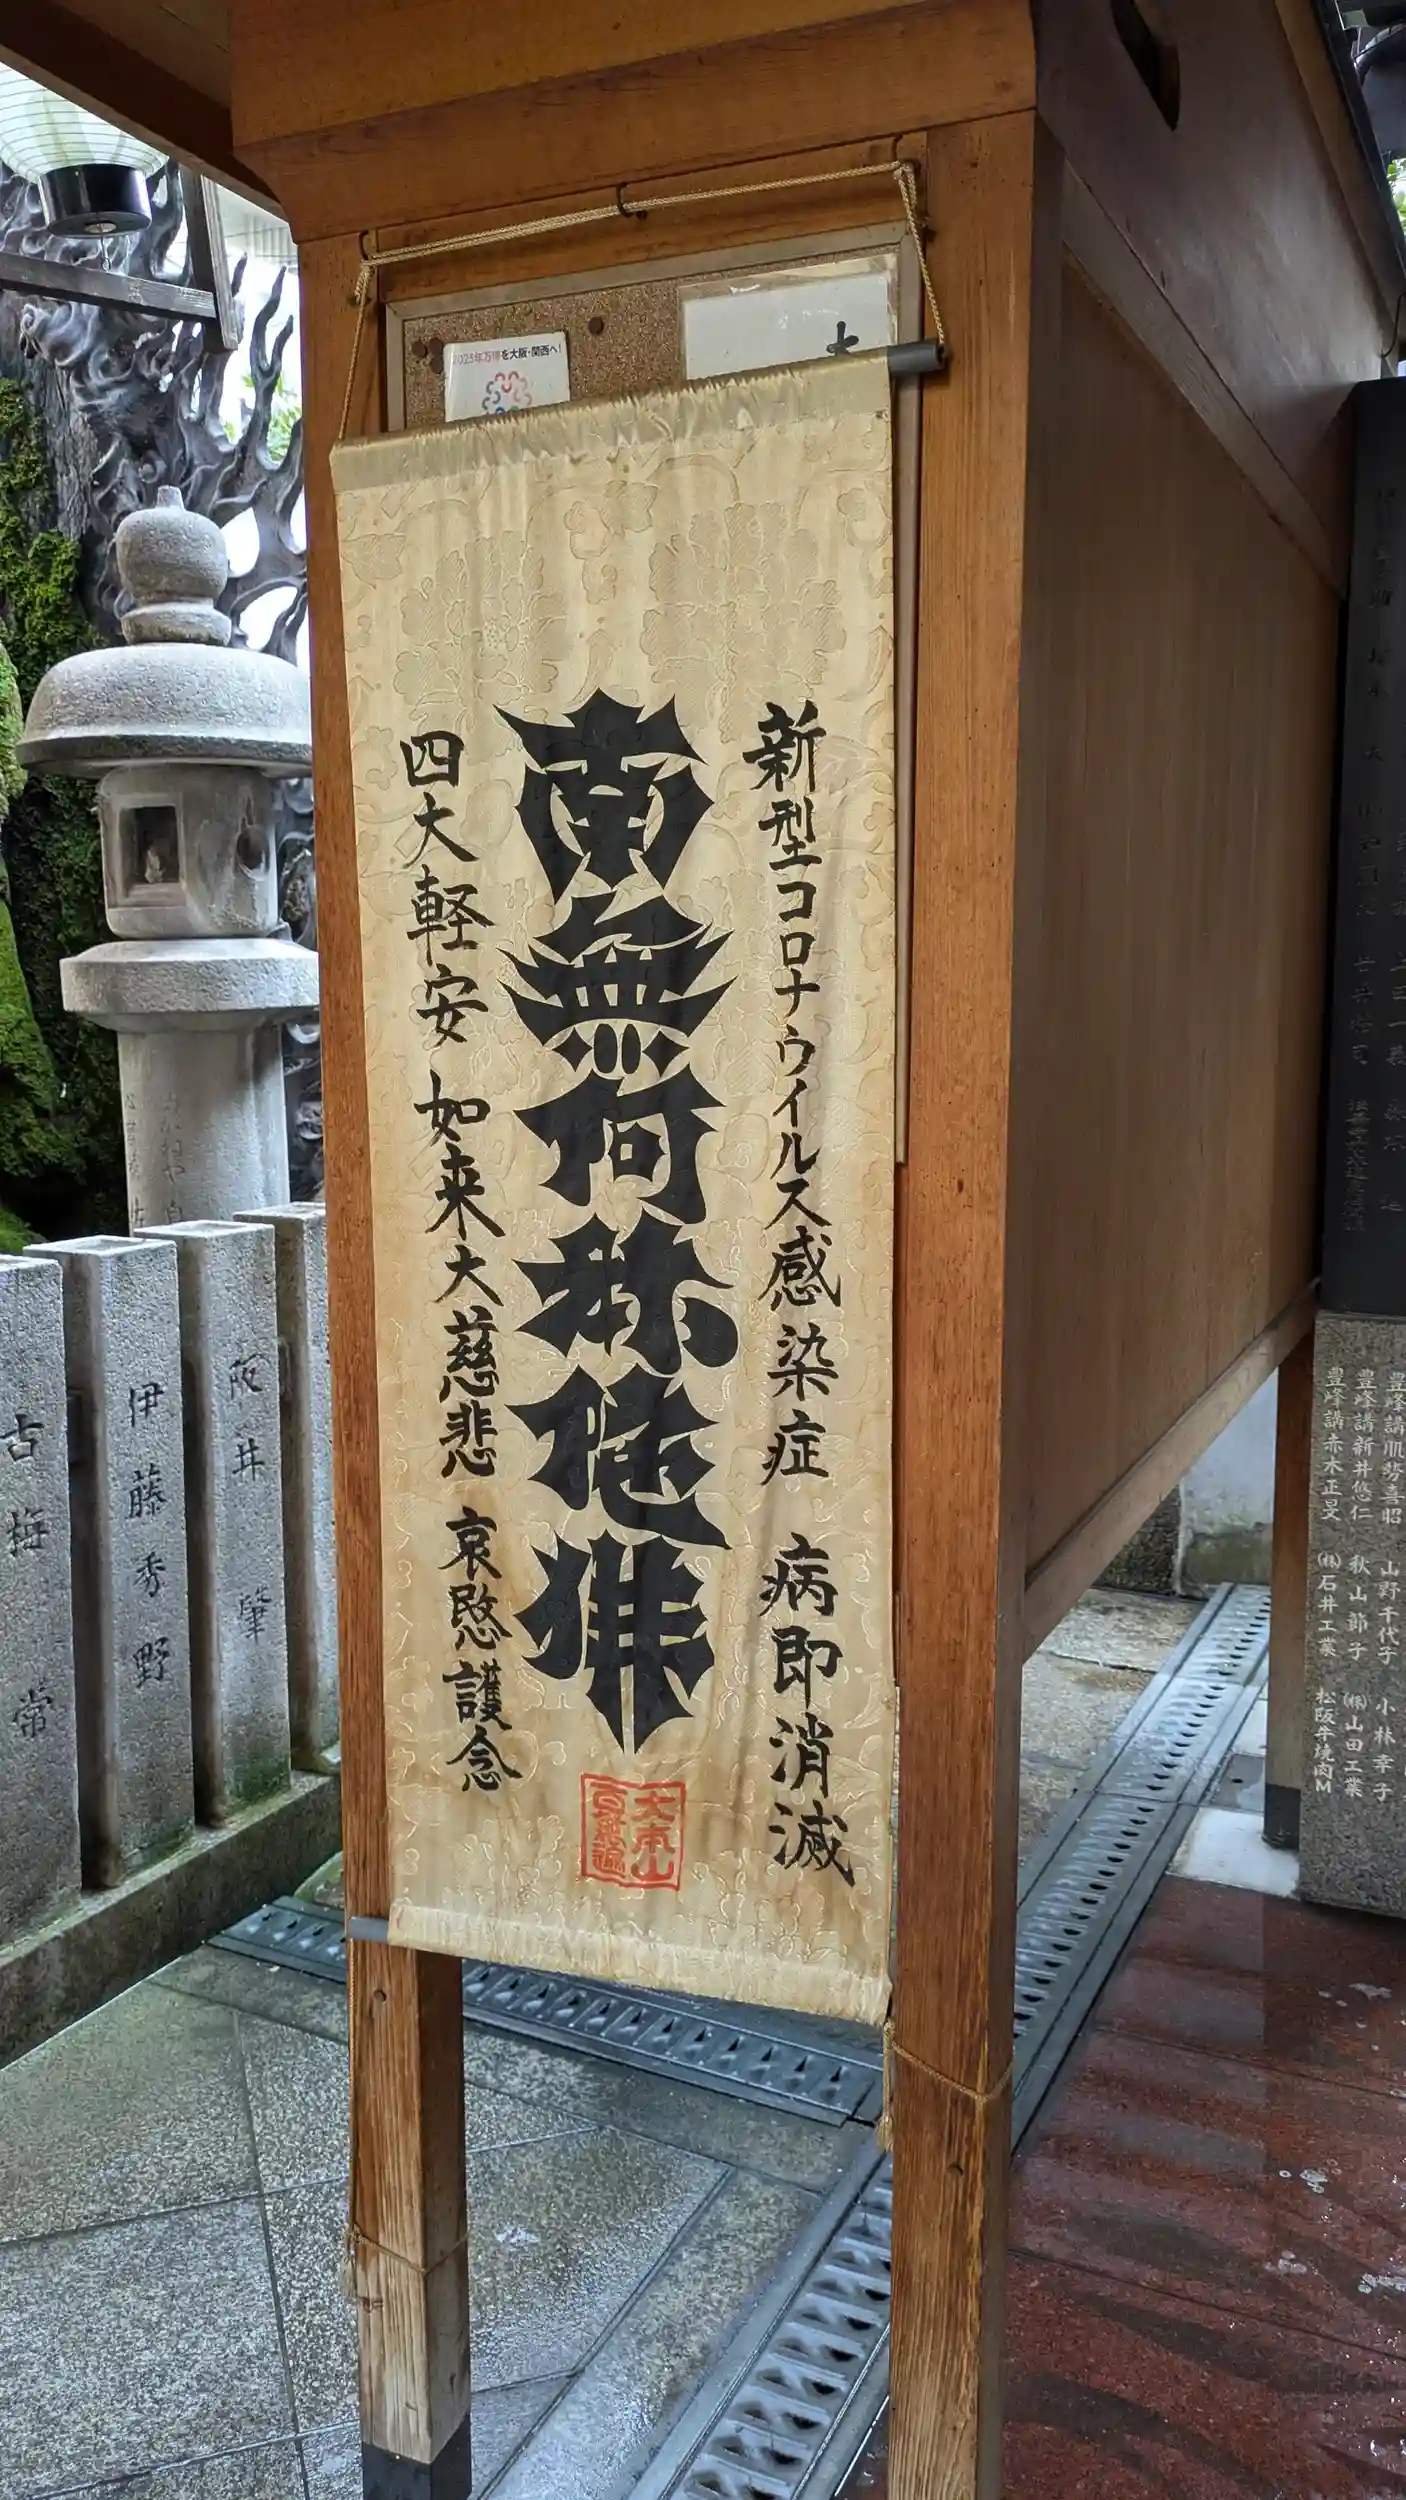 2025年万博を大阪・関西へ!
大
新型コロナウイルス感染症 病即消滅
南無阿弥陀佛
四大軽安 如来大慈悲 哀愍護念
大本山
百萬遍
阿井 肇
伊藤秀野
古梅常
豊峰講肌勢喜昭 山野千代子 小林幸子
豊峰講新井悠仁 秋山節子 ㈱山田工業
豊峰講赤木正旻 ㈱石井工業 松阪牛焼肉M